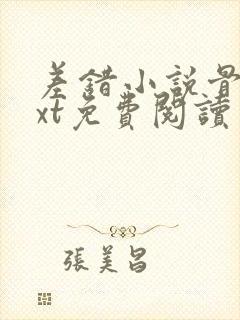 差錯小說最
xt免費閱讀
張美昌